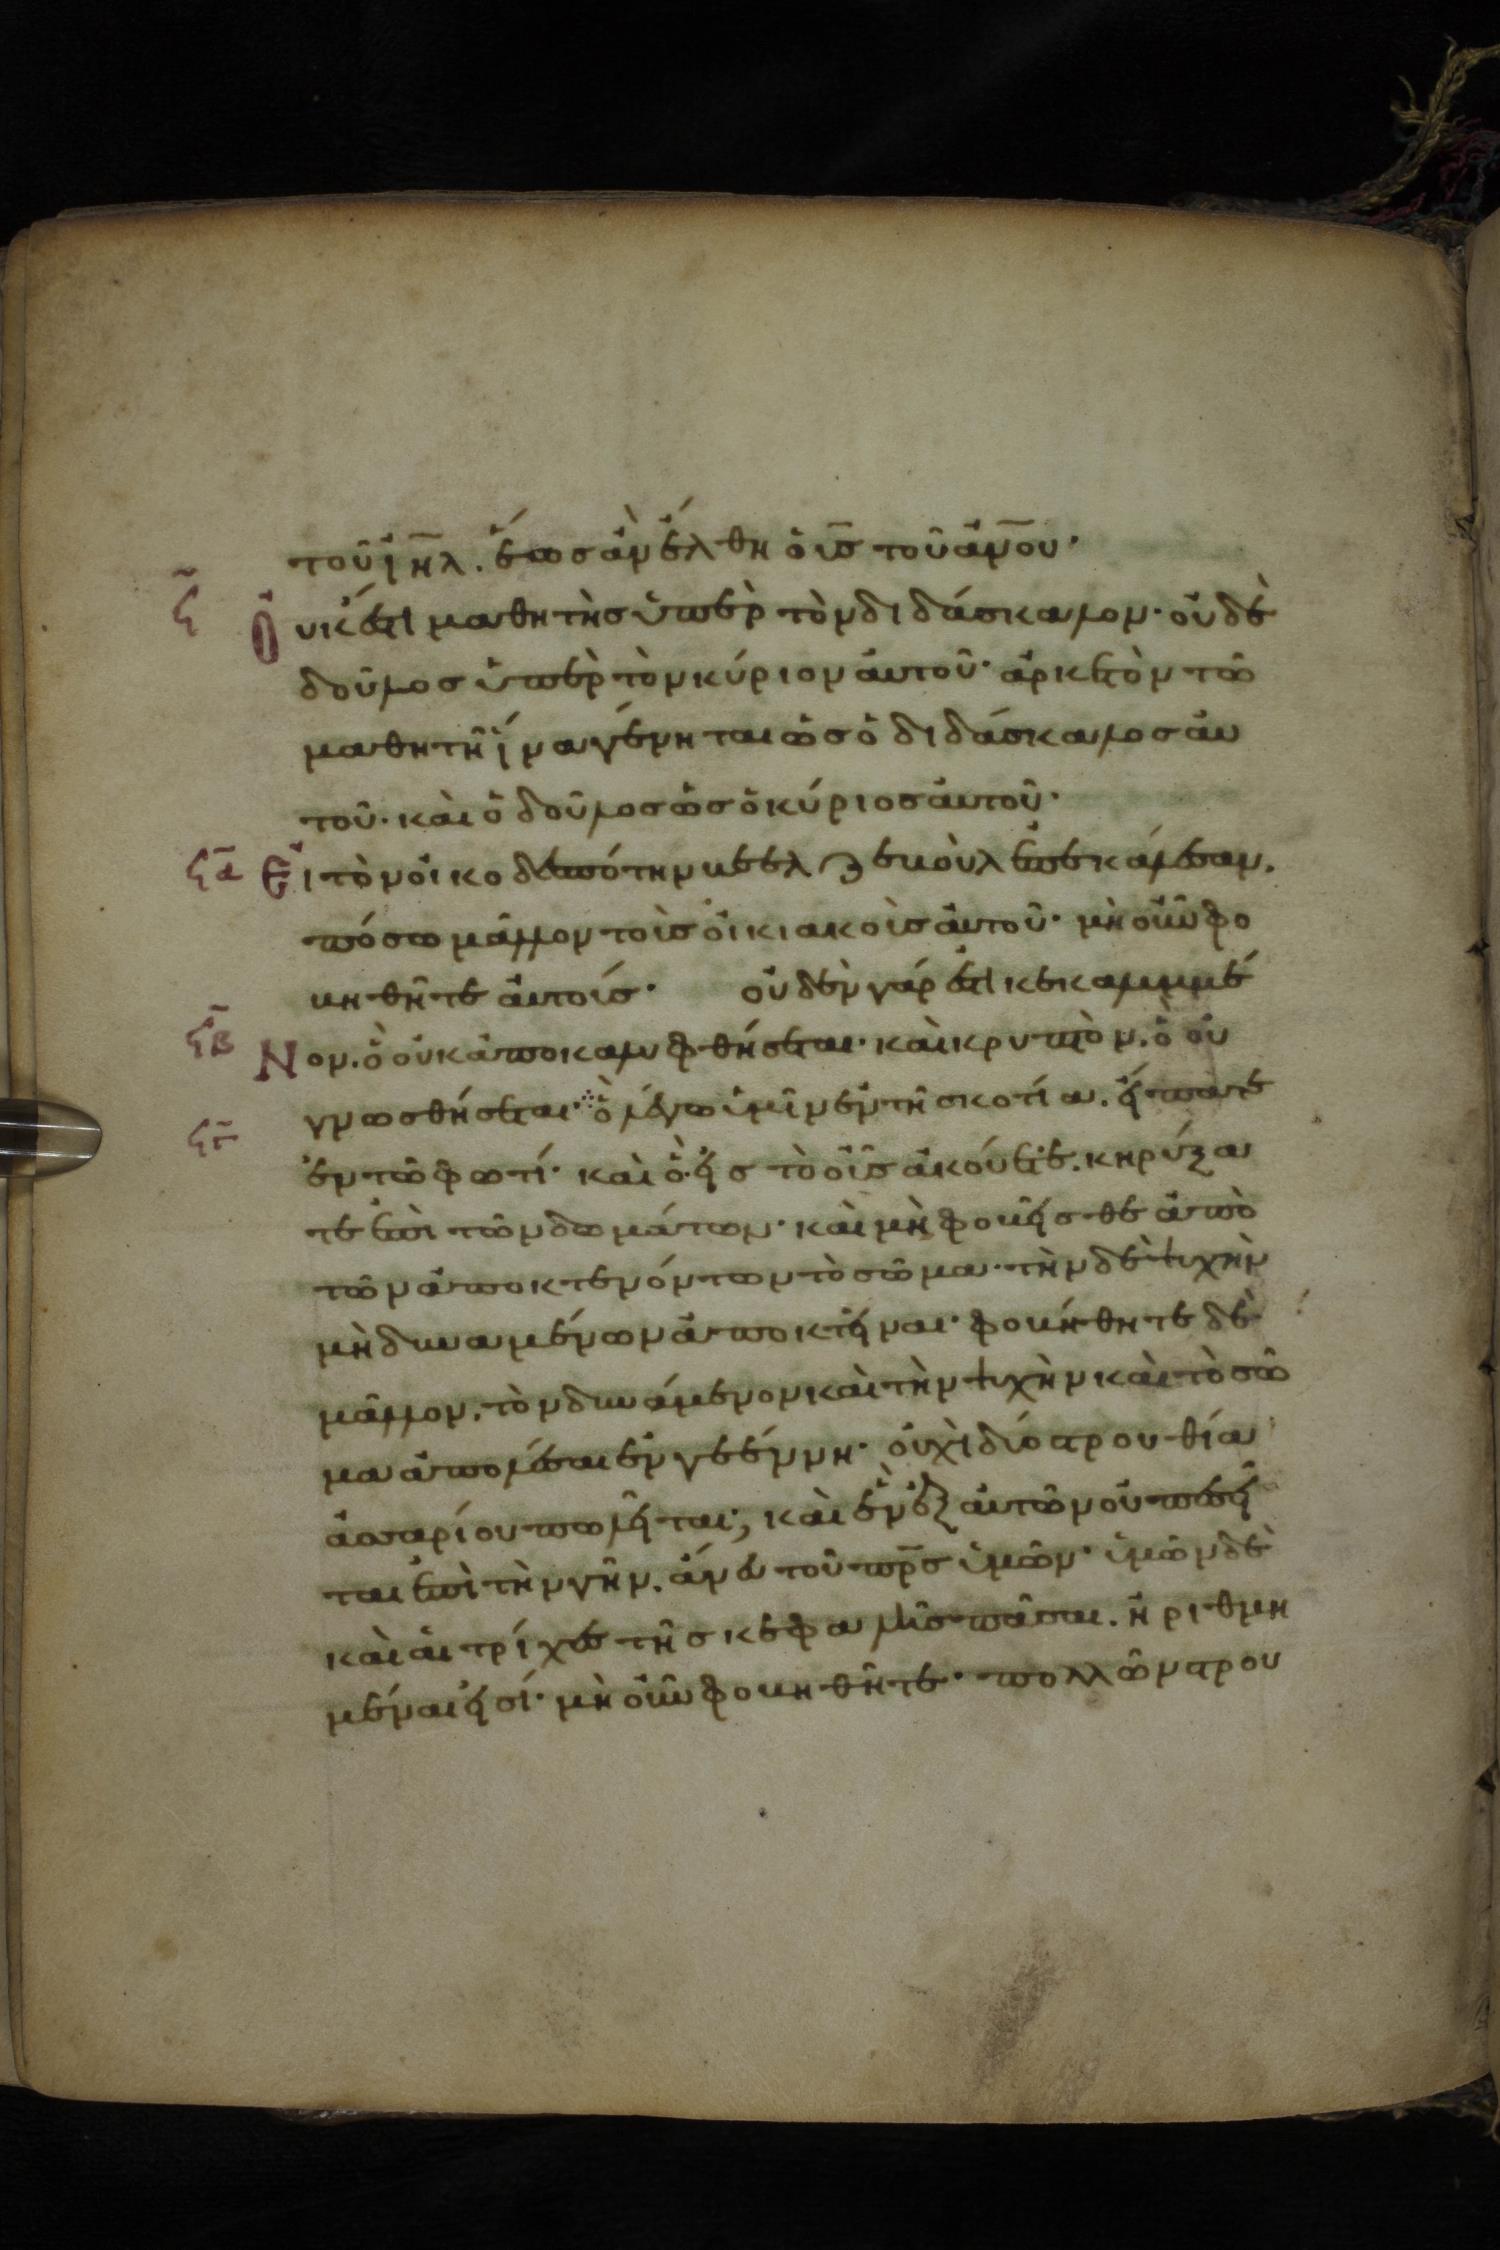 τοῦ ἰη̅λ. ἕως ἂν ἔλθη ὁ υι̅ς τοῦ ἀν̅ου·
ϟ Οὐκ ἔστι μαθητὴς ὑπὲρ τὸν διδάσκαλον· οὐδὲ
δοῦλος ὑπὲρ τὸν κύριον αὐτοῦ· ἀρκετὸν τῶ
μαθητῆ ἵνα γένηται ὡς ὁ διδάσκαλος αὐ
τοῦ· καὶ ὁ δοῦλος ὡς ὁ κύριος αὐτοῦ·
ϟα Εἰ τὸν οἰκοδεσπότην βεελζεβοὺλ ἐπεκάλεσαν.
πόσω μᾶλλον τοὶς οἰκιακοὶς αὐτοῦ· μὴ οὖν φο
βηθῆτε αὐτοίς· οὐδὲν γάρ ἐστι κεκαλυμμέ
ϟβ Νον. ὃ οὐκ ἀποκαλυφθήσεται· καὶ κρυπτὸν. ὃ οὐ
ϟγ γνωσθήσεται· ὃ λέγω ὑμῖν ἐν τῆ σκοτία. εἴπατε
ἐν τῶ φωτί· καὶ ὃ εἰς τὸ οὖς ἀκούετε. κηρύξα
τε ἐπὶ τῶν δωμάτων· καὶ μὴ φοβεῖσθε ἀπὸ
τῶν ἀποκτενόντων τὸ σῶμα· τὴν δὲ ψυχὴν
μὴ δυναμένων ἀποκτεῖναι· φοβήθητε δὲ
μᾶλλον. τὸν δυνάμενον καὶ τὴν ψυχὴν καὶ τὸ σῶ
μα ἀπολέσαι ἐν γεέννη· οὐχὶ δύο στρουθία
ἀσσαρίου πωλεῖται; καὶ ἓν ἐξ αὐτῶν οὐ πεσεῖ
ται ἐπὶ τὴν γῆν. ἄνευ τοῦ πρ̅ς ὑμῶν· ὑμῶν δὲ
καὶ αἱ τρίχες τῆς κεφαλῆς πᾶσαι. ἠριθμη
μέναι εἰσί· μὴ οὖν φοβηθῆτε· πολλῶν στρου